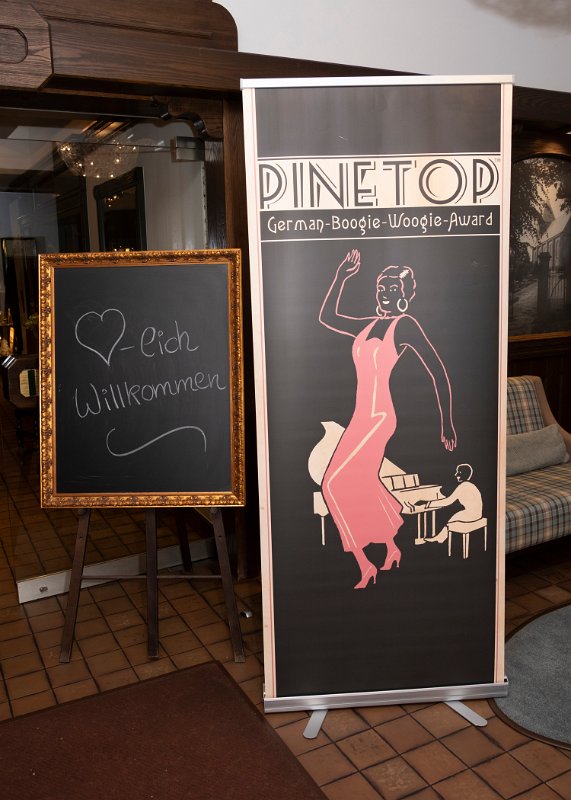 PINETOP™
German-Boogie-Woogie-Award
♡-lich
Willkommen